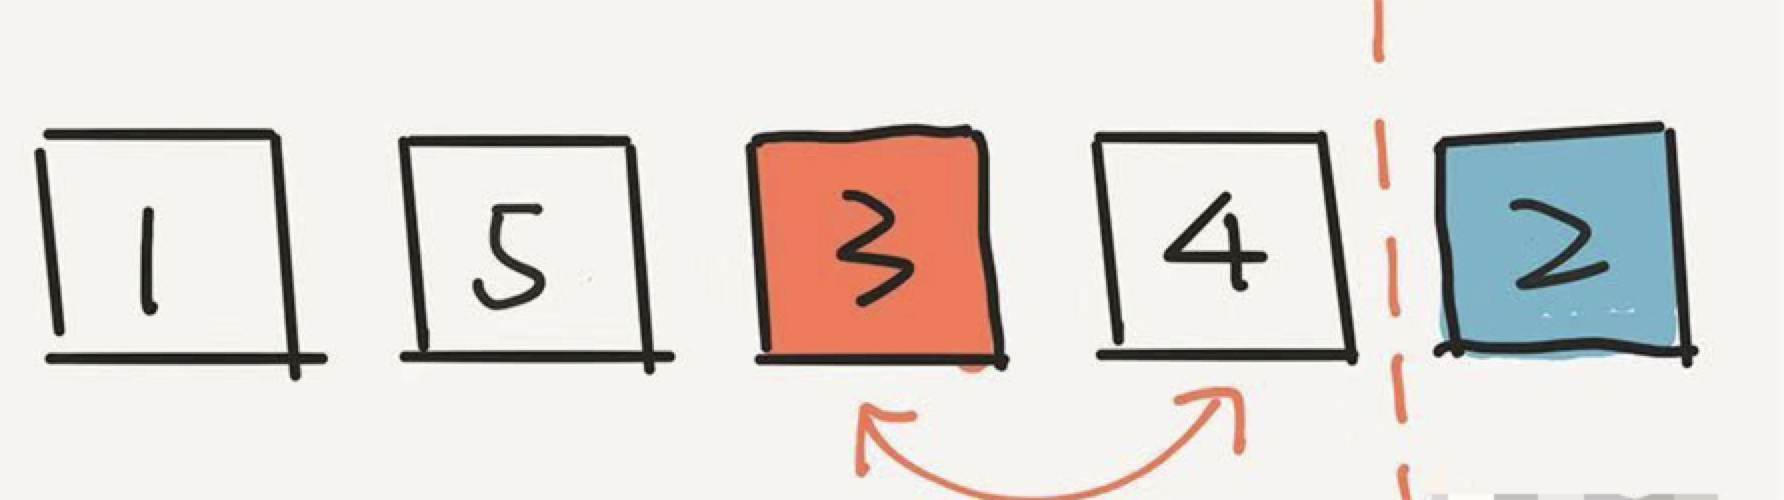 1 5 3 4 2